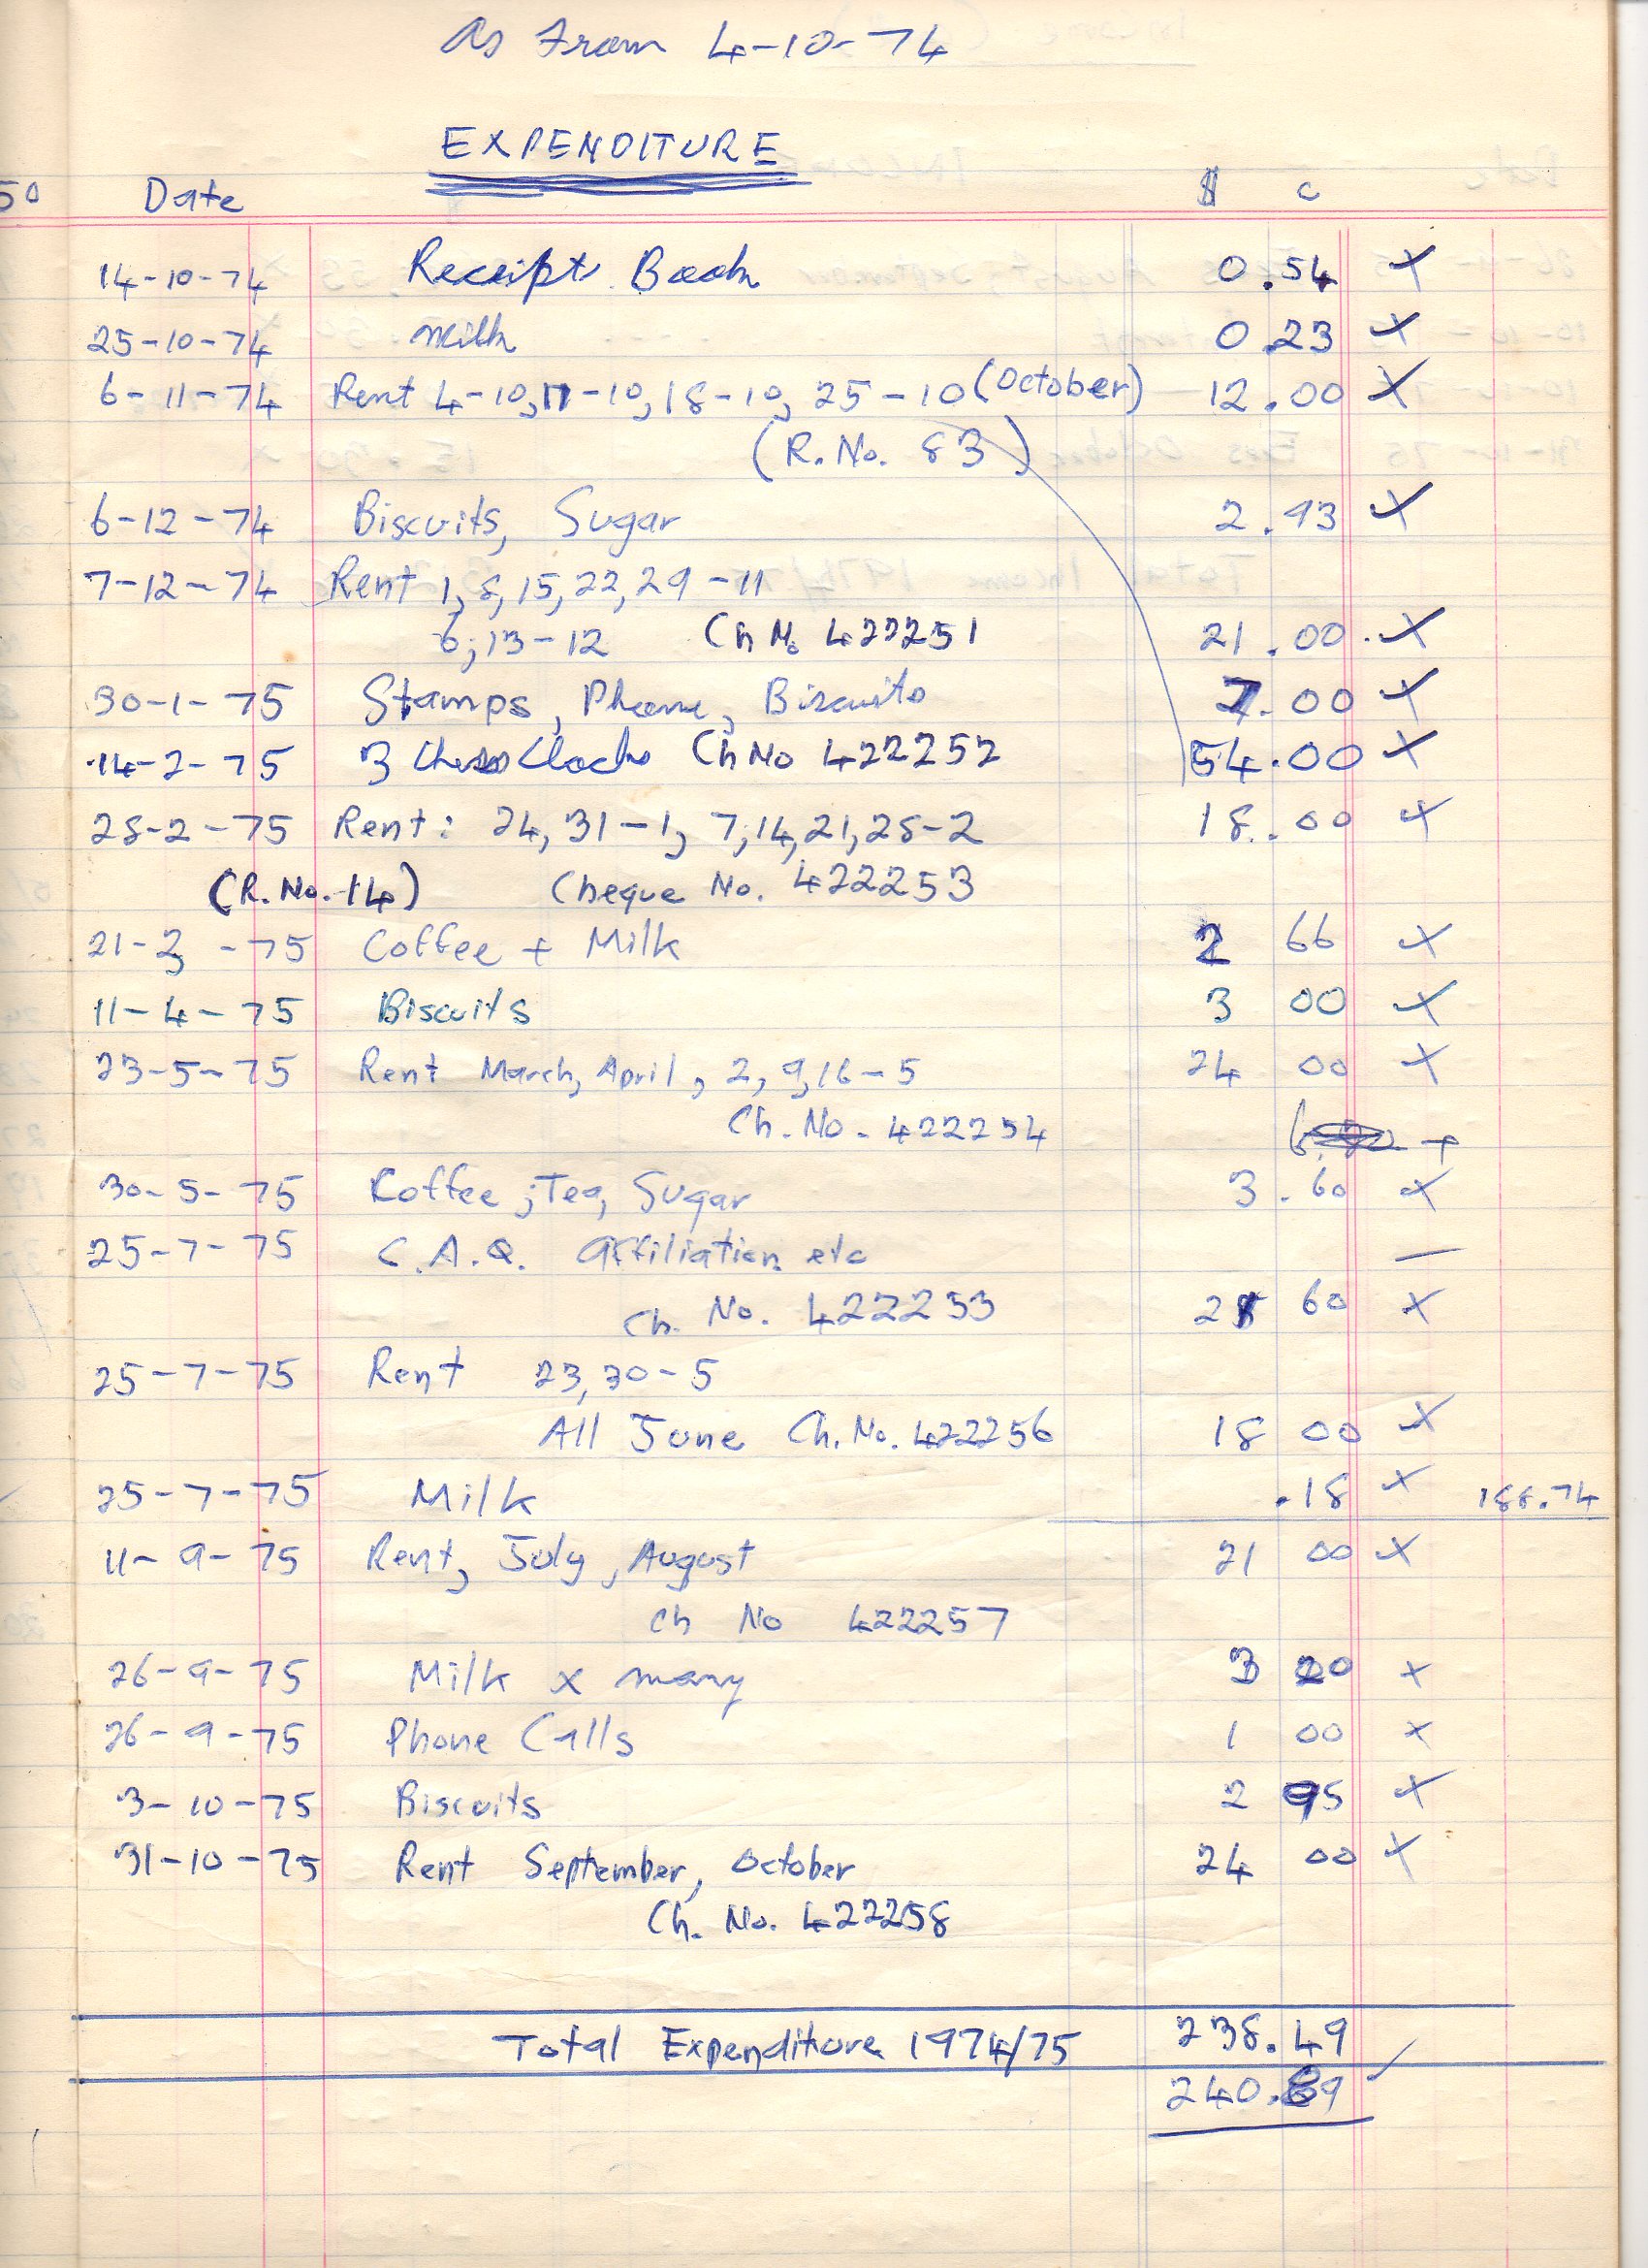 As From 4-10-74
EXPENDITURE
50 Date $ c
14-10-74 Receipt Book 0.54 x
25-10-74 Milk 0 23 x
6-11-74 Rent 4-10, 11-10, 18-10, 25-10 (October) 12.00 x
(R.No. 83)
6-12-74 Biscuits, Sugar 2.93 x
7-12-74 Rent 1, 8, 15, 22, 29-11
6, 13-12 Ch No 422251 21.00 x
30-1-75 Stamps, Phone, Biscuits 7.00 x
14-2-75 3 Chess Clocks Ch No 422252 54.00 x
28-2-75 Rent: 24, 31-1, 7, 14, 21, 28-2 18.00 x
(R.No. 14) Cheque No. 422253
21-3-75 Coffee + Milk 2 66 x
11-4-75 Biscuits 3 00 x
23-5-75 Rent March, April, 2, 9, 16-5 24 00 x
Ch. No. 422254
30-5-75 Koffee, Tea, Sugar 3.60 x
25-7-75 C.A.Q. affiliation etc —
Ch. No. 422253 21 60 x
25-7-75 Rent 23, 30-5
All June Ch. No. 422256 18 00 x
25-7-75 Milk .18 x 188.74
11-9-75 Rent, July, August 21 00 x
Ch No 422257
26-9-75 Milk x many 3 20 x
26-9-75 Phone Calls 1 00 x
3-10-75 Biscuits 2 95 x
31-10-75 Rent September, October 24 00 x
Ch. No. 422258
Total Expenditure 1974/75 238.49
240.89